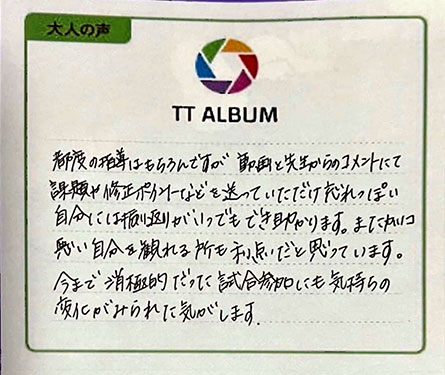 大人の声
TT ALBUM
都度の指導はもちろんですが 動画と先生からのコメントにて
課題や修正ポイントなどを送っていただけ忘れっぽい
自分には振り返りがいつでもでき助かります。また カッコ
悪い自分を観れる所も利点だと思っています。
今まで消極的だった試合参加にも気持ちの
変化がみられた気がします.